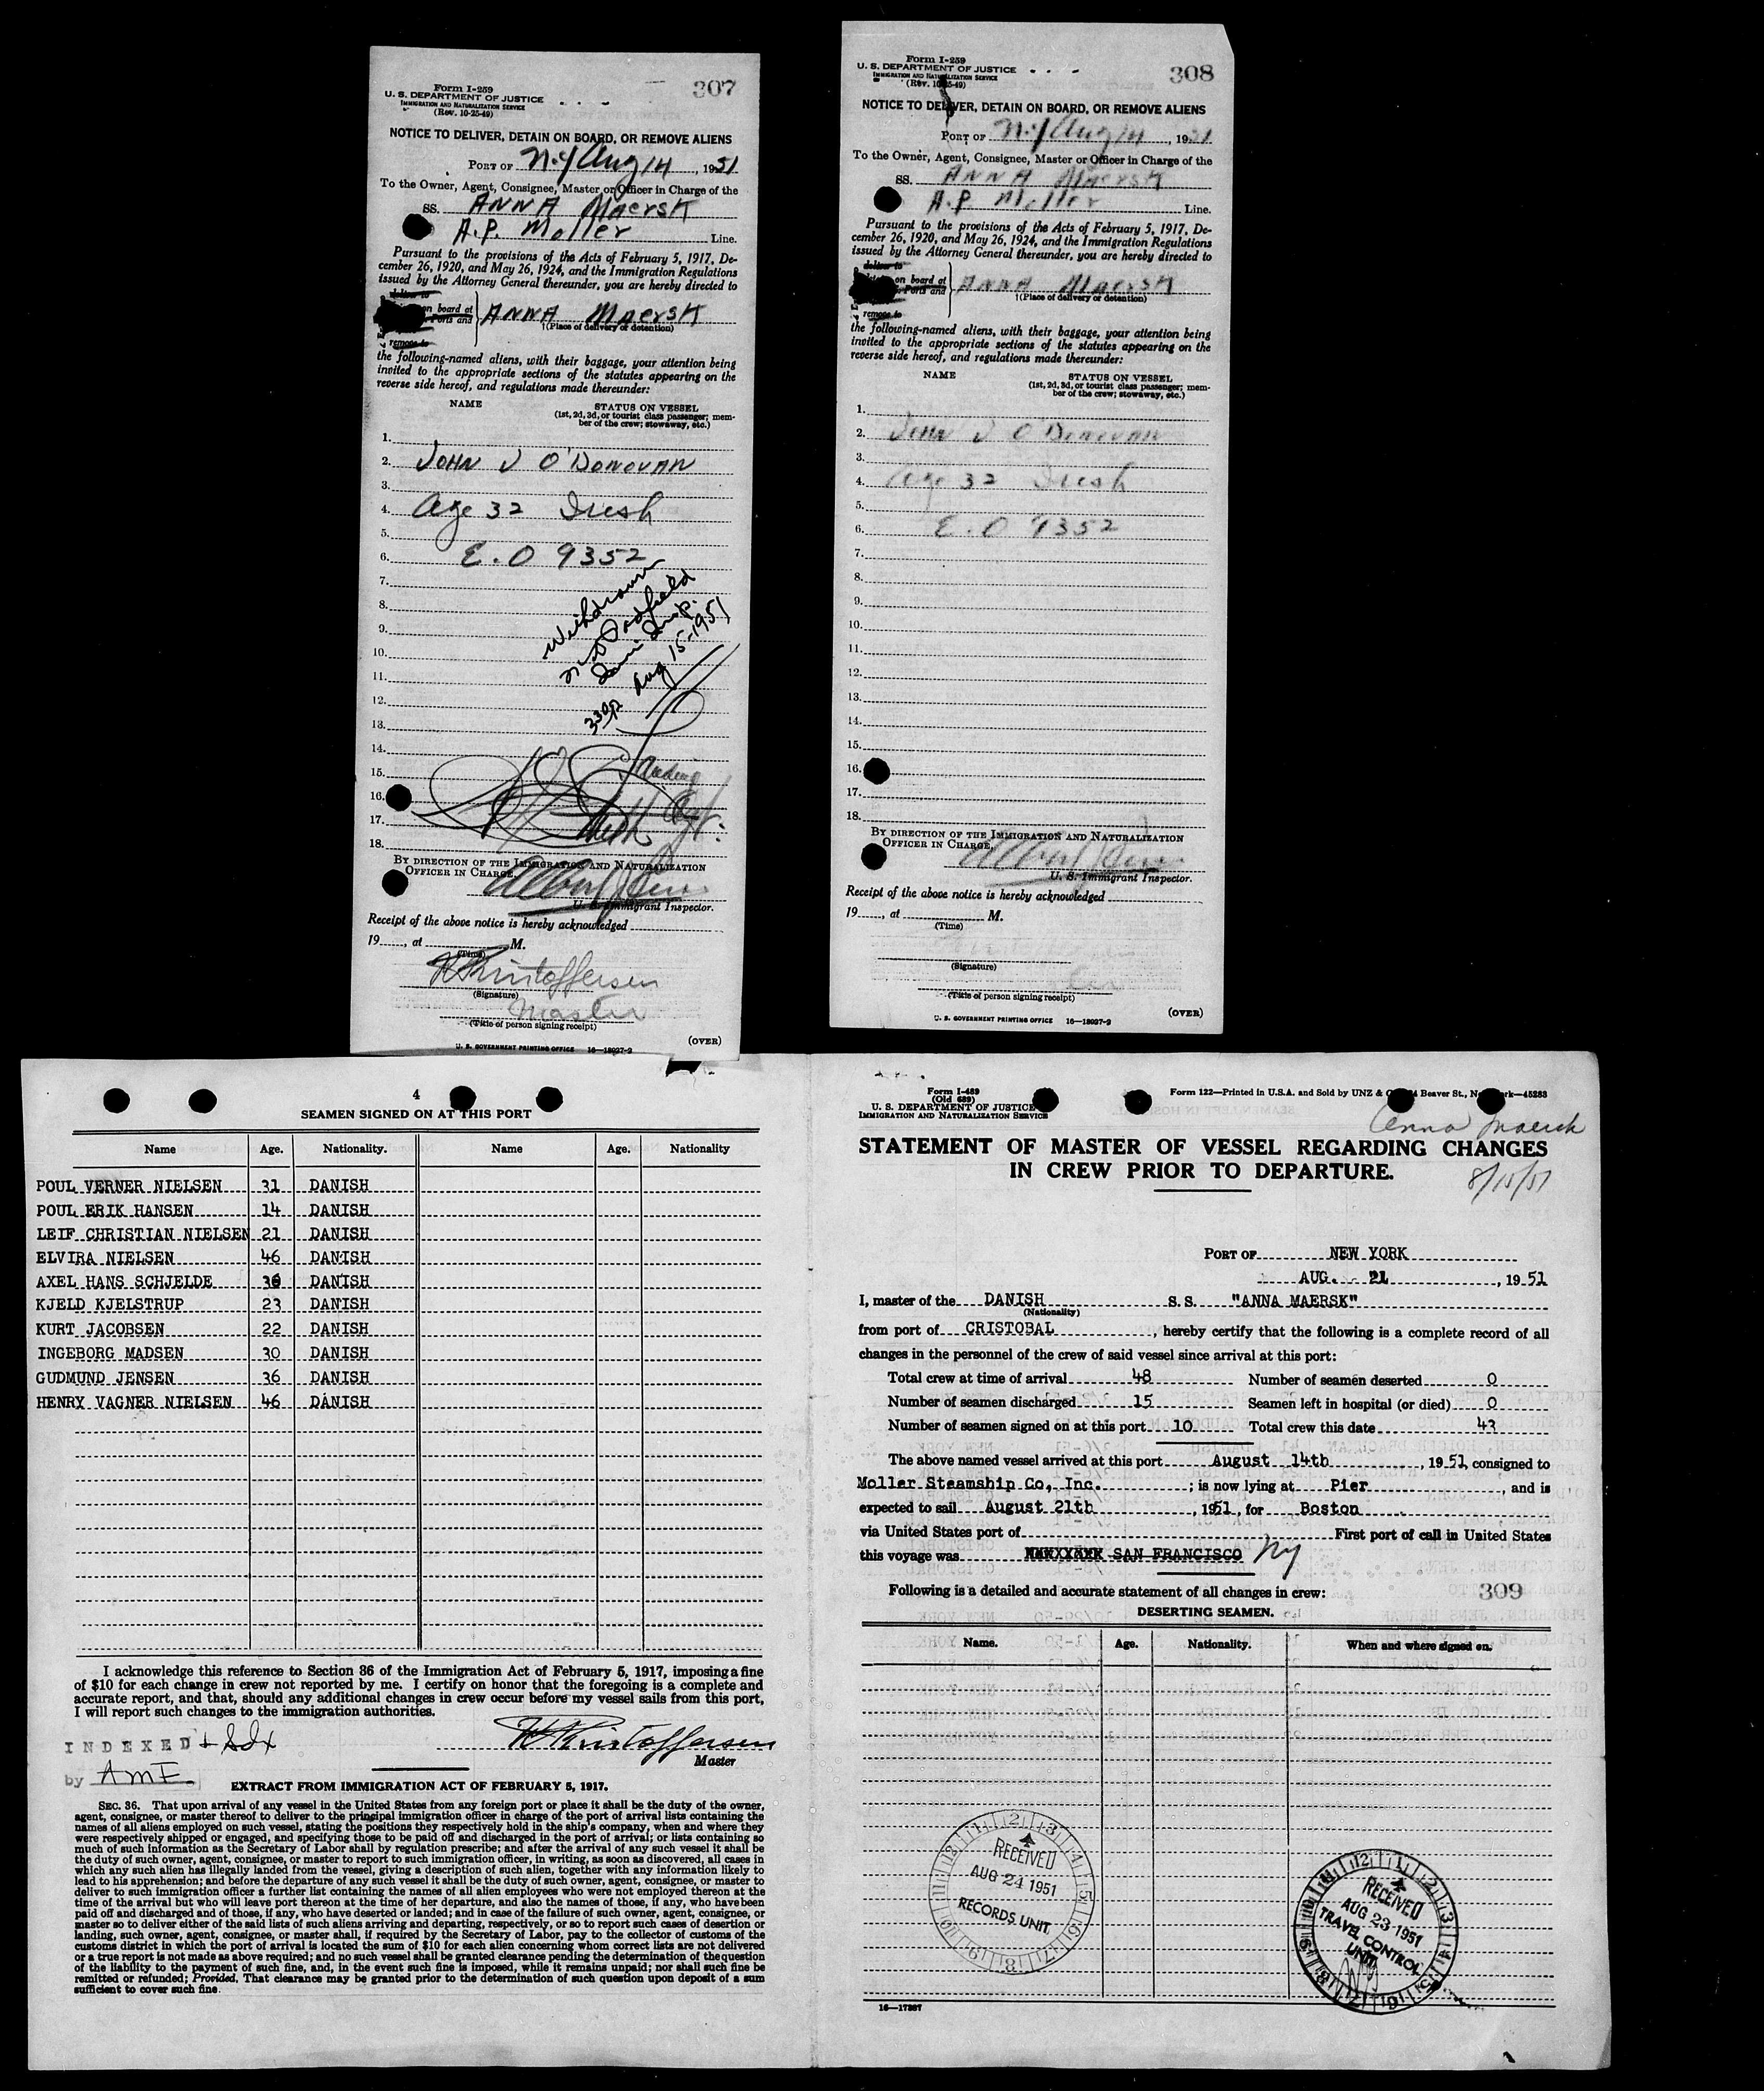 307
Form I-259
U. S. DEPARTMENT OF JUSTICE
IMMIGRATION AND NATURALIZATION SERVICE
(Rev. 10-25-49)
NOTICE TO DELIVER, DETAIN ON BOARD, OR REMOVE ALIENS
PORT OF N.Y Aug 14, 1951
To the Owner, Agent, Consignee, Master or Officer in Charge of the
SS. ANNA MAERSK
A.P. Moller Line.
Pursuant to the provisions of the Acts of February 5, 1917, De-
cember 26, 1920, and May 26, 1924, and the Immigration Regulations
issued by the Attorney General thereunder, you are hereby directed to
deliver to
on board at
Ports and
remove to
ANNA MAERSK
†(Place of delivery or detention)
the following-named aliens, with their baggage, your attention being
invited to the appropriate sections of the statutes appearing on the
reverse side hereof, and regulations made thereunder:
NAME STATUS ON VESSEL
(1st, 2d, 3d, or tourist class passenger; mem-
ber of the crew; stowaway, etc.)
1.
2. JOHN J O'DONOVAN
3.
4. Age 32 Irish
5.
6. E.O 9352
7.
8.
9.
10.
11.
12.
13.
14.
15.
16.
17.
18.
Withdrawn
Aug 15-1951
330p
BY DIRECTION OF THE IMMIGRATION AND NATURALIZATION
OFFICER IN CHARGE,
U. S. Immigrant Inspector.
Receipt of the above notice is hereby acknowledged
19, at M.
(Time)
Kristoffersen
(Signature)
Master
(Title of person signing receipt)
(OVER)
U. S. GOVERNMENT PRINTING OFFICE 16—18937-2
308
Form I-259
U. S. DEPARTMENT OF JUSTICE
IMMIGRATION AND NATURALIZATION SERVICE
(Rev. 10-25-49)
NOTICE TO DELIVER, DETAIN ON BOARD, OR REMOVE ALIENS
PORT OF N.Y Aug 14, 1951
To the Owner, Agent, Consignee, Master or Officer in Charge of the
SS. ANNA MAERSK
A.P. Moller Line.
Pursuant to the provisions of the Acts of February 5, 1917, De-
cember 26, 1920, and May 26, 1924, and the Immigration Regulations
issued by the Attorney General thereunder, you are hereby directed to
deliver to
on board at
Ports and
remove to
ANNA MAERSK
†(Place of delivery or detention)
the following-named aliens, with their baggage, your attention being
invited to the appropriate sections of the statutes appearing on the
reverse side hereof, and regulations made thereunder:
NAME STATUS ON VESSEL
(1st, 2d, 3d, or tourist class passenger; mem-
ber of the crew; stowaway, etc.)
1.
2. JOHN J O'DONOVAN
3.
4. Age 32 Irish
5.
6. E.O 9352
7.
8.
9.
10.
11.
12.
13.
14.
15.
16.
17.
18.
BY DIRECTION OF THE IMMIGRATION AND NATURALIZATION
OFFICER IN CHARGE,
U. S. Immigrant Inspector.
Receipt of the above notice is hereby acknowledged
19, at M.
(Time)
(Signature)
(Title of person signing receipt)
(OVER)
U. S. GOVERNMENT PRINTING OFFICE 16—18937-2
4
SEAMEN SIGNED ON AT THIS PORT
Name Age. Nationality. Name Age. Nationality
POUL VERNER NIELSEN 31 DANISH
POUL ERIK HANSEN 14 DANISH
LEIF CHRISTIAN NIELSEN 21 DANISH
ELVIRA NIELSEN 46 DANISH
AXEL HANS SCHJELDE 36 DANISH
KJELD KJELSTRUP 23 DANISH
KURT JACOBSEN 22 DANISH
INGEBORG MADSEN 30 DANISH
GUDMUND JENSEN 36 DANISH
HENRY VAGNER NIELSEN 46 DANISH
I acknowledge this reference to Section 36 of the Immigration Act of February 5, 1917, imposing a fine
of $10 for each change in crew not reported by me. I certify on honor that the foregoing is a complete and
accurate report, and that, should any additional changes in crew occur before my vessel sails from this port,
I will report such changes to the immigration authorities.
INDEXED
by AME
Kristoffersen
Master
EXTRACT FROM IMMIGRATION ACT OF FEBRUARY 5, 1917.
SEC. 36. That upon arrival of any vessel in the United States from any foreign port or place it shall be the duty of the owner,
agent, consignee, or master thereof to deliver to the principal immigration officer in charge of the port of arrival lists containing the
names of all aliens employed on such vessel, stating the positions they respectively hold in the ship's company, when and where they
were respectively shipped or engaged, and specifying those to be paid off and discharged in the port of arrival; or lists containing so
much of such information as the Secretary of Labor shall by regulation prescribe; and after the arrival of any such vessel it shall be
the duty of such owner, agent, consignee, or master to report to such immigration officer, in writing, as soon as discovered, all cases in
which any such alien has illegally landed from the vessel, giving a description of such alien, together with any information likely to
lead to his apprehension; and before the departure of any such vessel it shall be the duty of such owner, agent, consignee, or master to
deliver to such immigration officer a further list containing the names of all alien employees who were not employed thereon at the
time of the arrival but who will leave port thereon at the time of her departure, and also the names of those, if any, who have been
paid off and discharged and of those, if any, who have deserted or landed; and in case of the failure of such owner, agent, consignee, or
master so to deliver either of the said lists of such aliens arriving and departing, respectively, or so to report such cases of desertion or
landing, such owner, agent, consignee, or master shall, if required by the Secretary of Labor, pay to the collector of customs of the
customs district in which the port of arrival is located the sum of $10 for each alien concerning whom correct lists are not delivered
or a true report is not made as above required; and no such vessel shall be granted clearance pending the determination of the question
of the liability to the payment of such fine, and, in the event such fine is imposed, while it remains unpaid; nor shall such fine be
remitted or refunded; Provided, That clearance may be granted prior to the determination of such question upon deposit of a sum
sufficient to cover such fine.
Form I-489
(Old 689)
U. S. DEPARTMENT OF JUSTICE
IMMIGRATION AND NATURALIZATION SERVICE
Form 122—Printed in U.S.A. and Sold by UNZ & Beaver St., —45283
Anna Maersk
STATEMENT OF MASTER OF VESSEL REGARDING CHANGES
IN CREW PRIOR TO DEPARTURE.
8/15/51
PORT OF NEW YORK
AUG. 21, 1951
I, master of the DANISH S.S. "ANNA MAERSK"
(Nationality)
from port of CRISTOBAL, hereby certify that the following is a complete record of all
changes in the personnel of the crew of said vessel since arrival at this port:
Total crew at time of arrival 48 Number of seamen deserted 0
Number of seamen discharged 15 Seamen left in hospital (or died) 0
Number of seamen signed on at this port 10 Total crew this date 43
The above named vessel arrived at this port August 14th, 1951, consigned to
Moller Steamship Co, Inc.; is now lying at Pier, and is
expected to sail August 21th, 1951, for Boston
via United States port of First port of call in United States
this voyage was SAN FRANCISCO NY
Following is a detailed and accurate statement of all changes in crew:
309
DESERTING SEAMEN.
Name. Age. Nationality. When and where signed on.
RECEIVED
AUG 24 1951
RECORDS UNIT
RECEIVED
AUG 23 1951
TRAVEL CONTROL
UNIT
16—17287